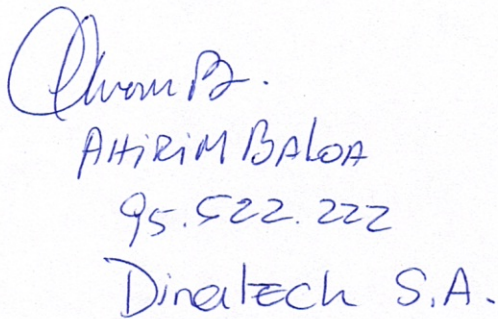 AHiRiM BALOA
95.522.222
Dinatech S.A.